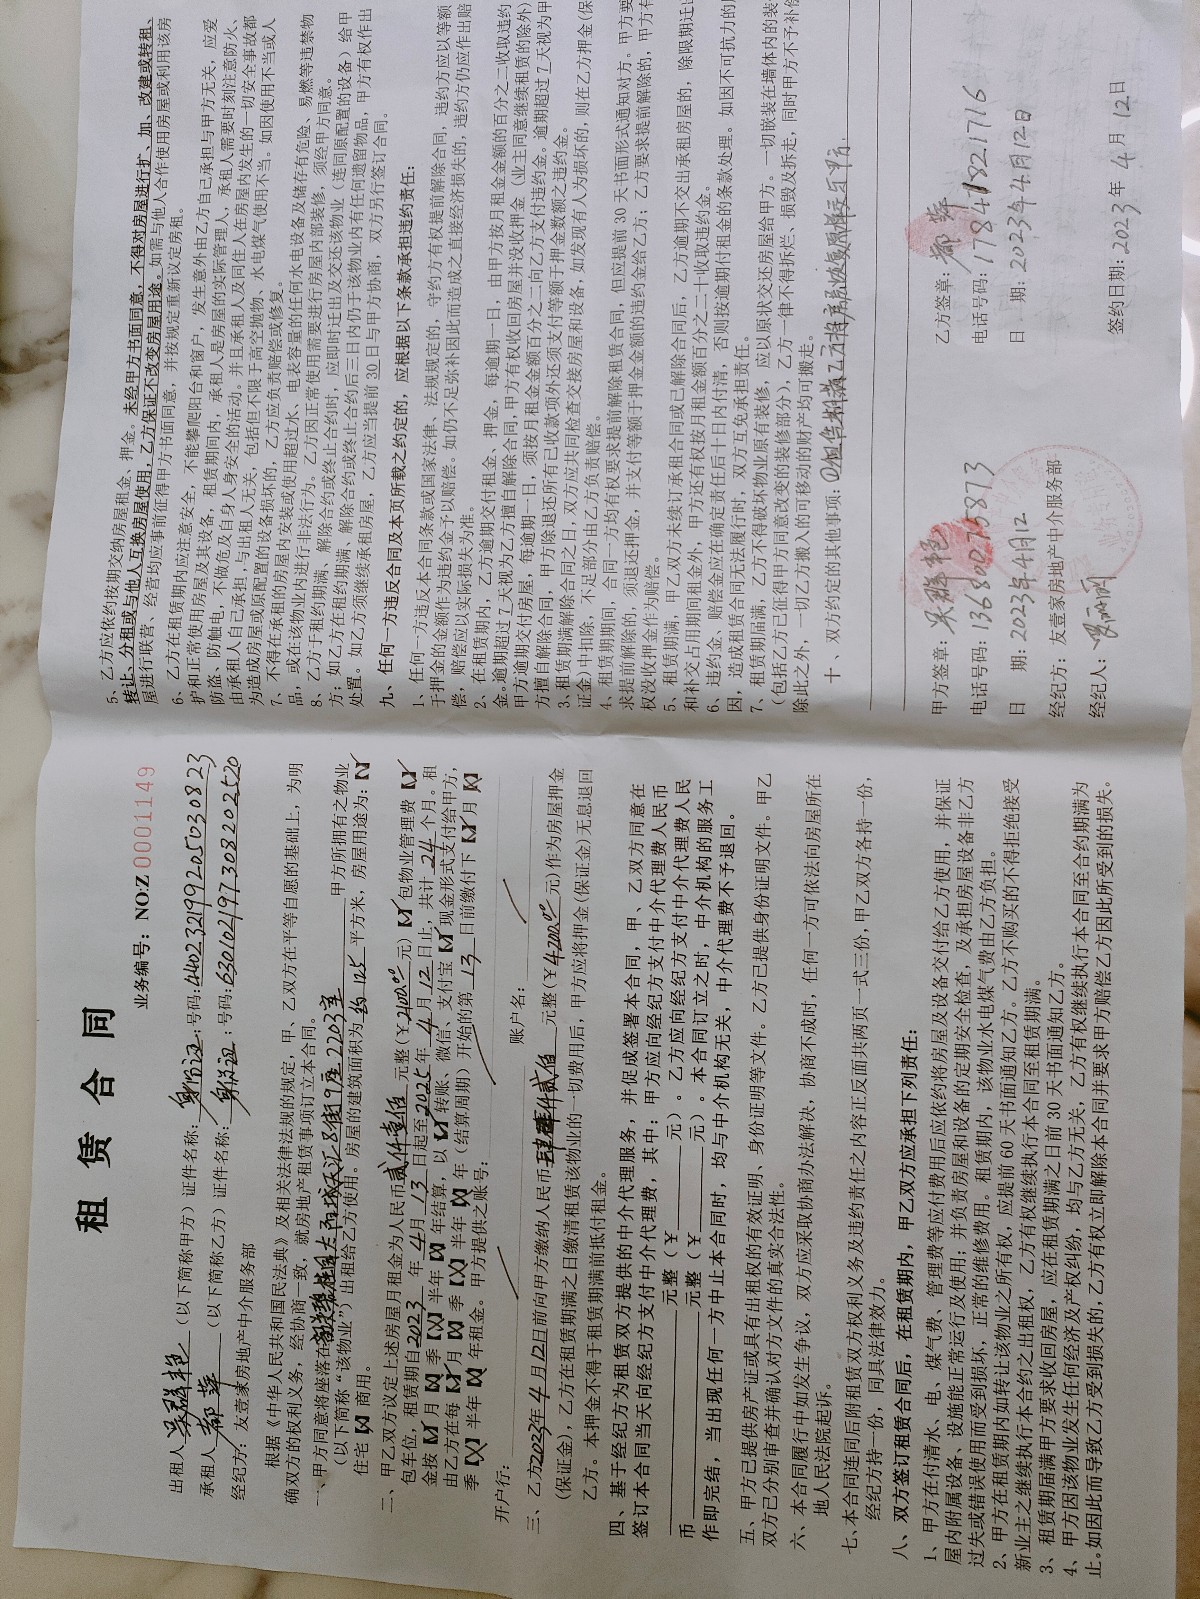 租 赁 合 同
业务编号：NO:Z 0001149
出租人 吴群艳 （以下简称甲方）证件名称：身份证；号码：440232199205030823
承租人 郝萍 （以下简称乙方）证件名称：身份证：号码：630102197308202520
经纪方：友壹家房地产中介服务部
根据《中华人民共和国民法典》及相关法律法规的规定，甲、乙双方在平等自愿的基础上，为明
确双方的权利义务，经协商一致，就房地产租赁事项订立本合同。
一、甲方同意将座落在 9座2203室 甲方所拥有之物业
（以下简称“该物业”）出租给乙方使用。房屋的建筑面积为 约125 平方米，房屋用途为：【√】
住宅【×】商用。
二、甲乙双方议定上述房屋月租金为人民币 贰仟壹佰 元整（￥2100.00元）【√】包物业管理费【√】
包车位，租赁期自2023年4月13日起至2025年4月12日止，共计24个月。租
金按【√】月【×】季【×】半年【×】年结算，以【√】转账、微信、支付宝【√】现金形式支付给甲方，
由乙方在每【√】月【×】季【×】半年【×】年（结算周期）开始的第 13 日前缴付下【√】月【×】
季【×】半年【×】年租金。甲方提供之账号：
开户行： 账户名：
三、乙方2023年4月12日前向甲方缴纳人民币 肆仟贰佰 元整（￥4200.00元）作为房屋押金
（保证金），乙方在租赁期满之日缴清租赁该物业的一切费用后，甲方应将押金（保证金）无息退回
乙方。本押金不得于租赁期满前抵付租金。
四、基于经纪方为租赁双方提供的中介代理服务，并促成签署本合同，甲、乙双方同意在
签订本合同当天向经纪方支付中介代理费，其中：甲方应向经纪方支付中介代理费人民币
元整（￥ 元）。乙方应向经纪方支付中介代理费人民
币 元整（￥ 元）。本合同订立之时，中介机构的服务工
作即完结，当出现任何一方中止本合同时，均与中介机构无关，中介代理费不予退回。
五、甲方已提供房产证或具有出租权的有效证明、身份证明等文件。乙方已提供身份证明文件。甲乙
双方已分别审查并确认对方文件的真实合法性。
六、本合同履行中如发生争议，双方应采取协商办法解决，协商不成时，任何一方可依法向房屋所在
地人民法院起诉。
七、本合同连同后附租赁双方权利义务及违约责任之内容正反面共两页一式三份，甲乙双方各持一份，
经纪方持一份，同具法律效力。
八、双方签订租赁合同后，在租赁期内，甲乙双方应承担下列责任：
1、甲方在付清水、电、煤气费、管理费等应付费用后应依约将房屋及设备交付给乙方使用，并保证
屋内附属设备、设施能正常运行及使用；并负责房屋和设备的定期安全检查，及承担房屋设备非乙方
过失或错误使用而受到损坏，正常的维修费用。租赁期内，该物业水电煤气费由乙方负担。
2、甲方在租赁期内如转让该物业之所有权，应提前 60 天书面通知乙方。乙方不购买的不得拒绝接受
新业主之继续执行本合约之出租权，乙方有权继续执行本合同至租赁期满。
3、租赁期届满甲方要求收回房屋，应在租赁期满之日前 30 天书面通知乙方。
4、甲方因该物业发生任何经济及产权纠纷，均与乙方无关，乙方有权继续执行本合同至合约期满为
止。如因此而导致乙方受到损失的，乙方有权立即解除本合同并要求甲方赔偿乙方因此所受到的损失。
5、乙方应依约按期交纳房屋租金、押金。未经甲方书面同意，不得对房屋进行扩、加、改建或转租、
转让、分租或与他人互换房屋使用，乙方保证不改变房屋用途。如需与他人合作使用房屋或利用该房
屋进行联营、经营均应事前征得甲方书面同意，并按规定重新议定房租。
6、乙方在租赁期内应注意安全，不能攀爬阳台和窗户，发生意外由乙方自己承担与甲方无关，应爱
护和正常使用房屋及其设备，租赁期间内，承租人是房屋的实际管理人，承租人需要时刻注意防火、
防盗、防触电，不做危及自身人身安全的活动。并且承租人及同住人在房屋内发生的一切安全事故都
由承租人自己承担，与出租人无关，包括但不限于高空抛物、水电煤气使用不当。如因使用不当或人
为造成房屋或原配置的设备损坏的，乙方应负责赔偿或修复。
7、不得在承租的房屋内安装或使用超过水、电表容量的任何水电设备及储存有危险、易燃等违禁物
品，或在该物业内进行非法行为。乙方因正常使用需要进行房屋内部装修，须经甲方同意。
8、乙方于租约期满、解除合约或终止合约时，应即时迁出及交还该物业（连同原配置的设备）给甲
方；如乙方在租约期满、解除合约或终止合约后三日内仍于该物业内有任何遗留物品，甲方有权作出
处置。如乙方须继续承租房屋，乙方应当提前 30 日与甲方协商，双方另行签订合同。
九、任何一方违反合同及本页所载之约定的，应根据以下条款承担违约责任：
1、任何一方违反本合同条款或国家法律、法规规定的，守约方有权提前解除合同，违约方应以等额
于押金的金额作为违约金予以赔偿。如仍不足弥补因此而造成之直接经济损失的，违约方仍应作出赔
偿，赔偿应以实际损失为准。
2、在租赁期内，乙方逾期交付租金、押金，每逾期一日，由甲方按月租金金额的百分之二收取违约
金。逾期超过 7 天视为乙方擅自解除合同，甲方有权收回房屋并没收押金（业主同意继续租赁的除外）
甲方逾期交付房屋，每逾期一日，须按月租金金额百分之二向乙方支付违约金。逾期超过 7 天视为甲
方擅自解除合同，甲方除退还所有已收款项外还须支付等额于押金数额之违约金。
3、租赁期满解除合同之日，双方应共同检查交接房屋和设备，如发现有人为损坏的，则在乙方押金（保
证金）中扣除，不足部分由乙方负责赔偿。
4、租赁期期间，合同一方均有权要求提前解除租赁合同，但应提前 30 天书面形式通知对方。甲方要
求提前解除的，须退还押金，并支付等额于押金金额的违约金给乙方；乙方要求提前解除的，甲方有
权没收押金作为赔偿。
5、租赁期满，甲乙双方未续订承租合同或已解除合同后，乙方逾期不交出承租房屋的，除限期迁出
和补交占用期间租金外，甲方还有权按月租金额百分之二十收取违约金。
6、违约金、赔偿金应在确定责任后十日内付清，否则按逾期付租金的条款处理。如因不可抗力的原
因，造成租赁合同无法履行时，双方互免承担责任。
7、租赁期届满，乙方不得破坏物业原有装修，应以原状交还房屋给甲方。一切嵌装在墙体内的装
（包括乙方已征得甲方同意改变的装修部分），乙方一律不得拆烂、损毁及拆走，同时甲方不予补偿
除此之外，一切乙方搬入的可移动的财产均可搬走。
十、双方约定的其他事项：
甲方签章：吴群艳 乙方签章：郝萍
电话号码：13680275873 电话号码：17841321716
日 期：2023年4月12 日 期：2023年4月12日
经纪方：友壹家房地产中介服务部
经纪人： 签约日期：2023年 4 月 12 日